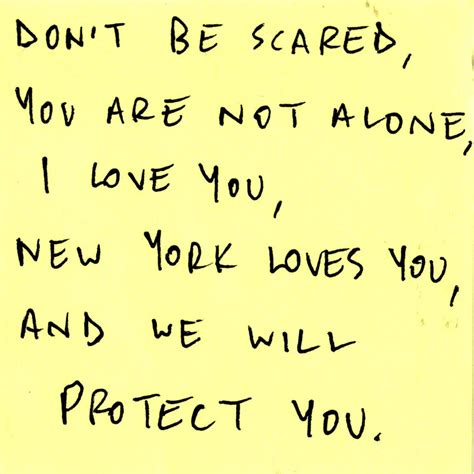 DON'T BE SCARED,
YOU ARE NOT ALONE,
I LOVE YOU,
NEW YORK LOVES YOU,
AND WE WILL
PROTECT YOU.